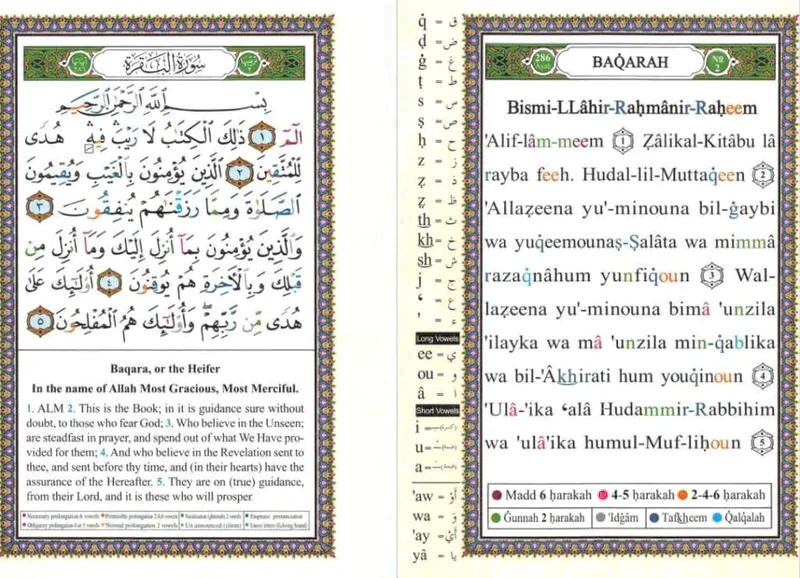 سورة البقرة
بسم الله الرحمن الرحيم
الٓمٓ ١ ذَٰلِكَ ٱلْكِتَٰبُ لَا رَيْبَ ۛ فِيهِ ۛ هُدًى
لِّلْمُتَّقِينَ ٢ ٱلَّذِينَ يُؤْمِنُونَ بِٱلْغَيْبِ وَيُقِيمُونَ
ٱلصَّلَوٰةَ وَمِمَّا رَزَقْنَٰهُمْ يُنفِقُونَ ٣
وَٱلَّذِينَ يُؤْمِنُونَ بِمَآ أُنزِلَ إِلَيْكَ وَمَآ أُنزِلَ مِن
قَبْلِكَ وَبِٱلْءَاخِرَةِ هُمْ يُوقِنُونَ ٤ أُو۟لَٰٓئِكَ عَلَىٰ
هُدًى مِّن رَّبِّهِمْ ۖ وَأُو۟لَٰٓئِكَ هُمُ ٱلْمُفْلِحُونَ ٥
Baqara, or the Heifer
In the name of Allah Most Gracious, Most Merciful.
1. ALM 2. This is the Book; in it is guidance sure without
doubt, to those who fear God; 3. Who believe in the Unseen;
are steadfast in prayer, and spend out of what We Have pro-
vided for them; 4. And who believe in the Revelation sent to
thee, and sent before thy time, and (in their hearts) have the
assurance of the Hereafter. 5. They are on (true) guidance,
from their Lord, and it is these who will prosper
Necessary prolongation 6 vowels Permissible prolongation 2,4,6 vowels Nasalization (ghunnah) 2 vowels Emphatic pronunciation
Obligatory prolongation 4 or 5 vowels Normal prolongation 2 vowels Un announced (silent) Unrest letters (Echoing Sound)
q̇ = ق
ḍ = ض
ġ = غ
ṭ = ط
s = س
ṣ = ص
ḥ = ح
z = ز
ẓ = ذ
ẓ = ظ
th = ث
kh = خ
sh = ش
j = ج
‘ = ع
' = ء
Long Vowels
ee = ي
ou = و
â = ا
Short Vowels
i =
u =
a =
'aw = أَوْ
wa = وَ
'ay = أَيْ
yâ = يا
286 BAQ̇ARAH № 2
Bismi-LLâhir-Raḥmânir-Raḥeem
'Alif-lâm-meem 1 Ẓâlikal-Kitâbu lâ
rayba feeh. Hudal-lil-Muttaq̇een 2
'Allaẓeena yu'-minouna bil-ġaybi
wa yuq̇eemounaṣ-Ṣalâta wa mimmâ
razaq̇nâhum yunfiq̇oun 3 Wal-
laẓeena yu'-minouna bimâ 'unzila
'ilayka wa mâ 'unzila min-q̇ablika
wa bil-'Âkhirati hum youq̇inoun 4
'Ulâ-'ika ‘alâ Hudammir-Rabbihim
wa 'ulâ'ika humul-Muf-liḥoun 5
Madd 6 ḥarakah 4-5 ḥarakah 2-4-6 ḥarakah
Ġunnah 2 ḥarakah 'Idġâm Tafkheem Q̇alq̇alah